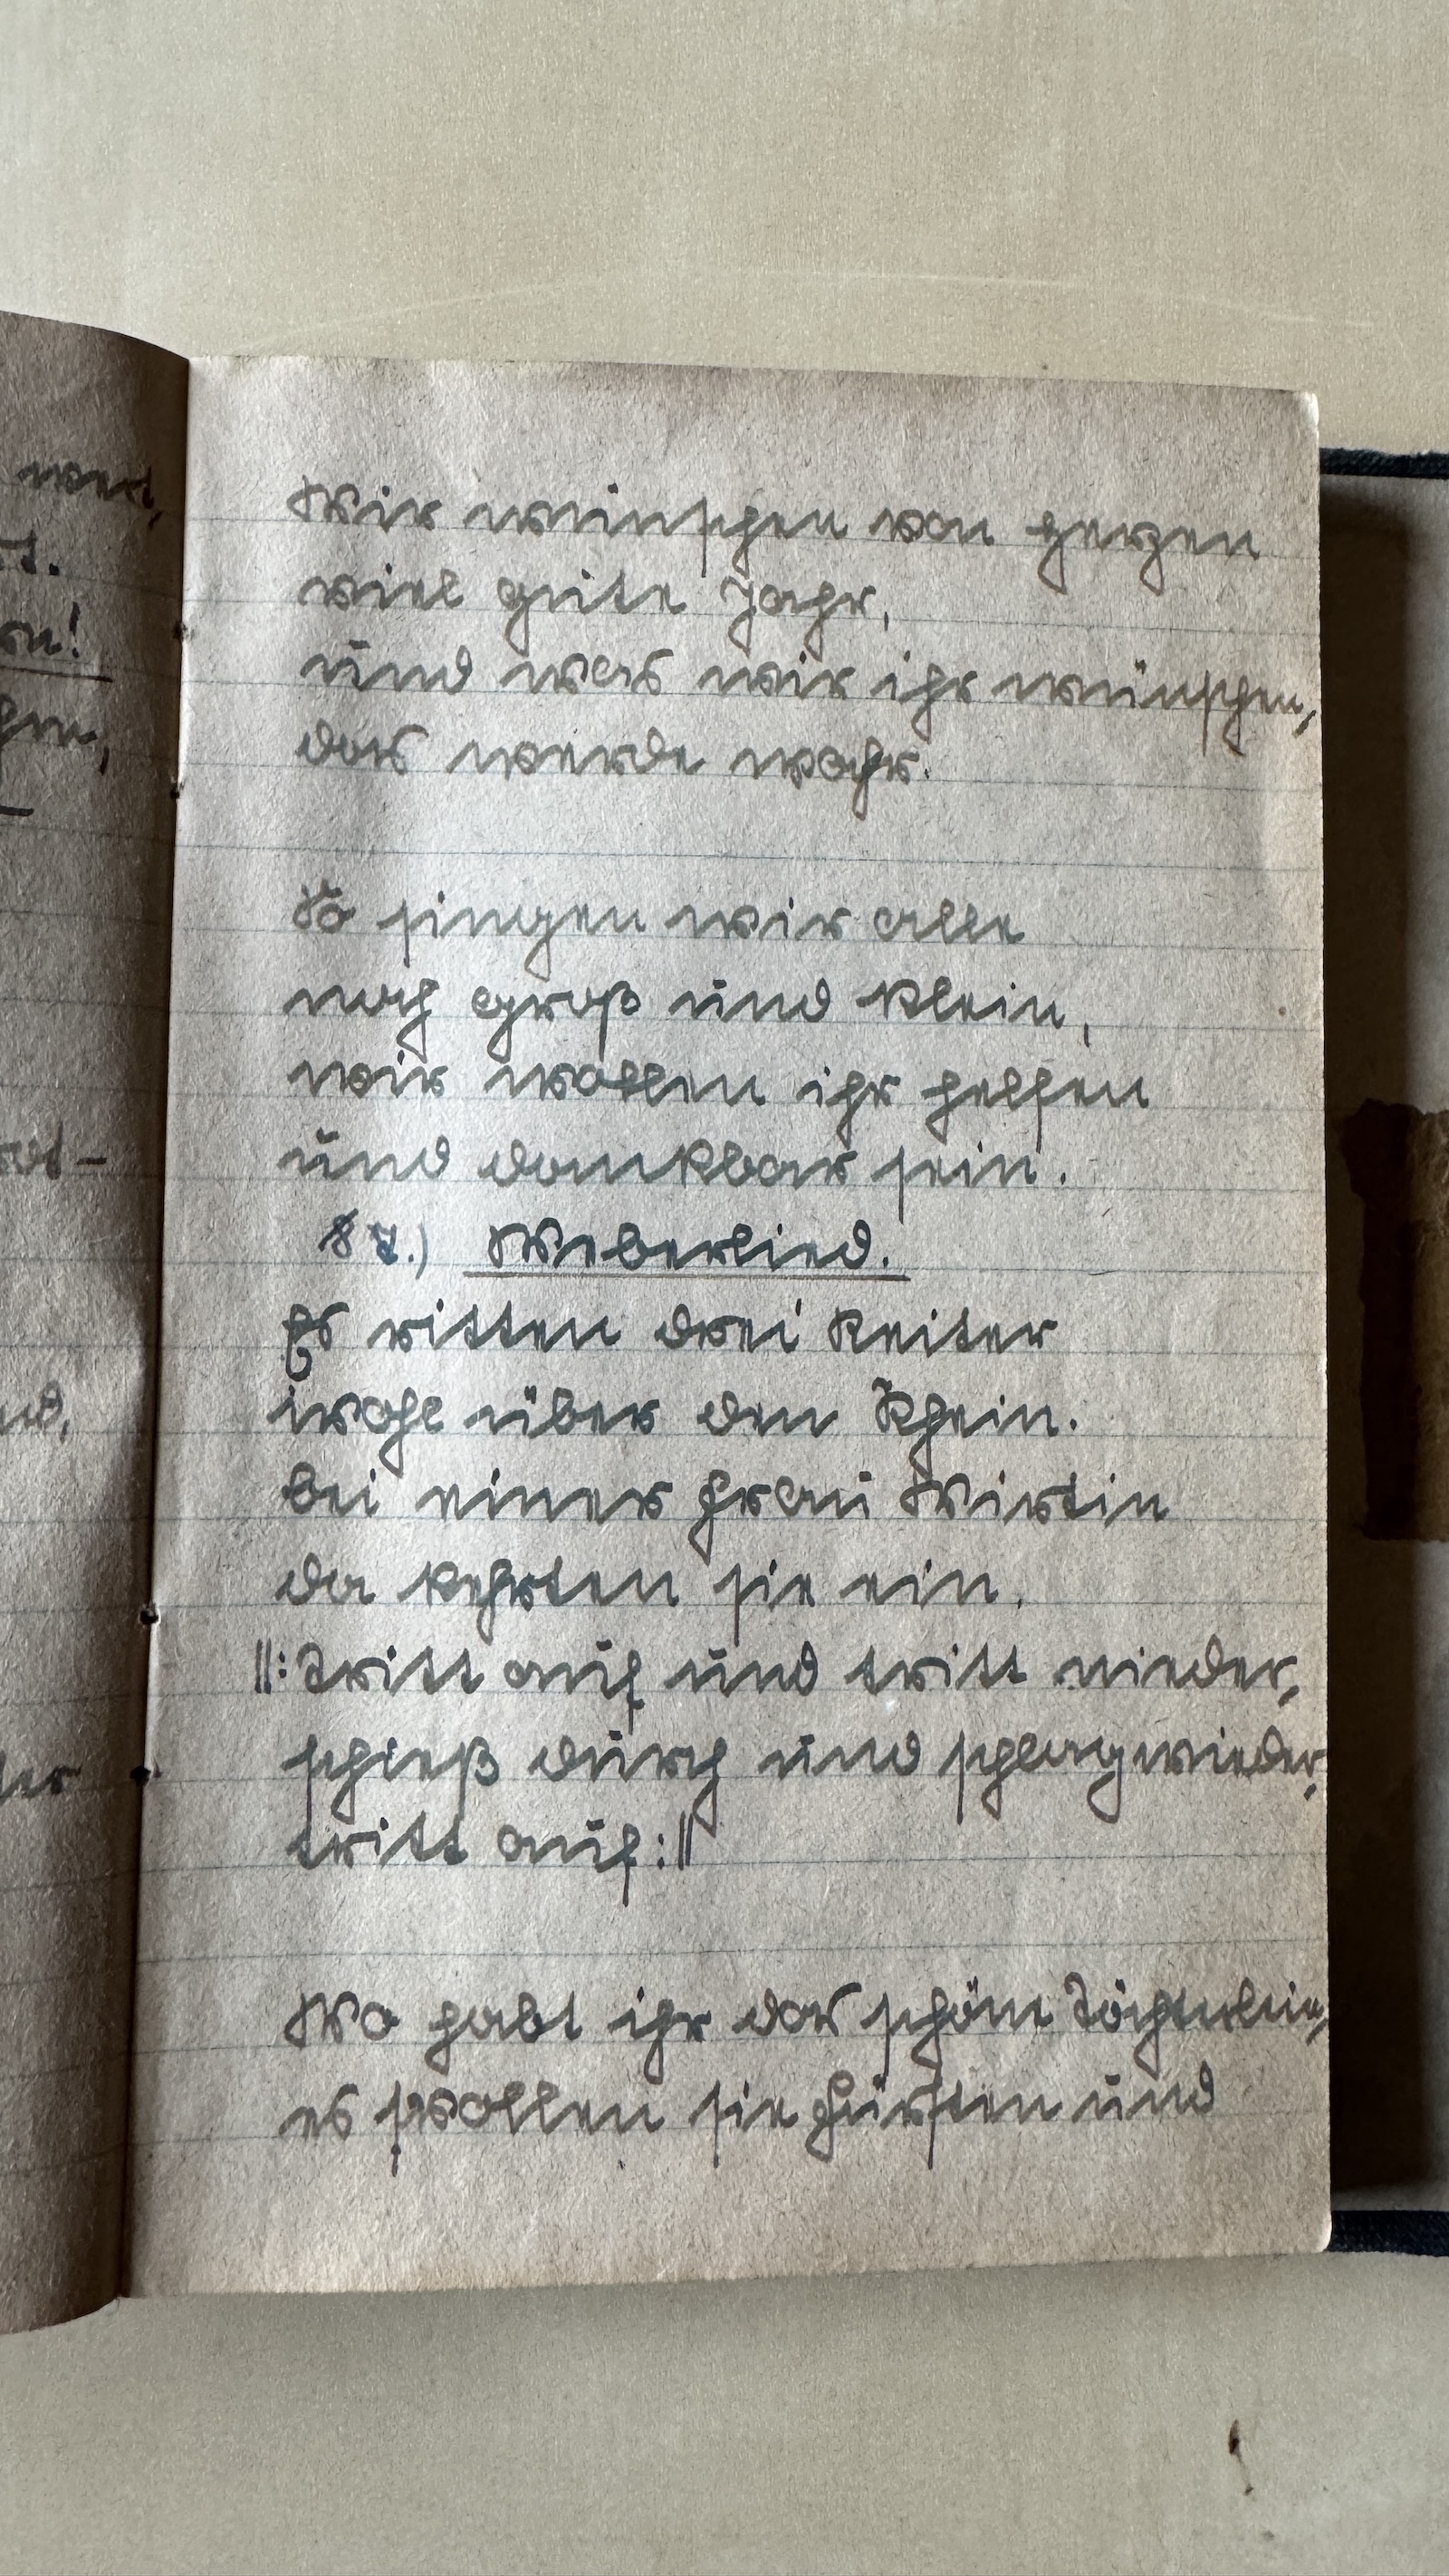 Wir wünschen von Herzen
viel gute Jahr,
und was wir ihr wünschen,
das werde wahr.
So singen wir alle
noch groß und klein,
wir wollen ihr helfen
und dankbar sein.
7.) Weberlied.
Es ritten drei Reiter
wohl über den Rhein.
bei einer Frau Wirtin
da kehrten sie ein.
||: Tritt auf und tritt nieder,
schieß durch und schlag wieder,
tritt auf :||
Wo habt ihr das schöne Töchterlein,
es wollen sie Fürsten und